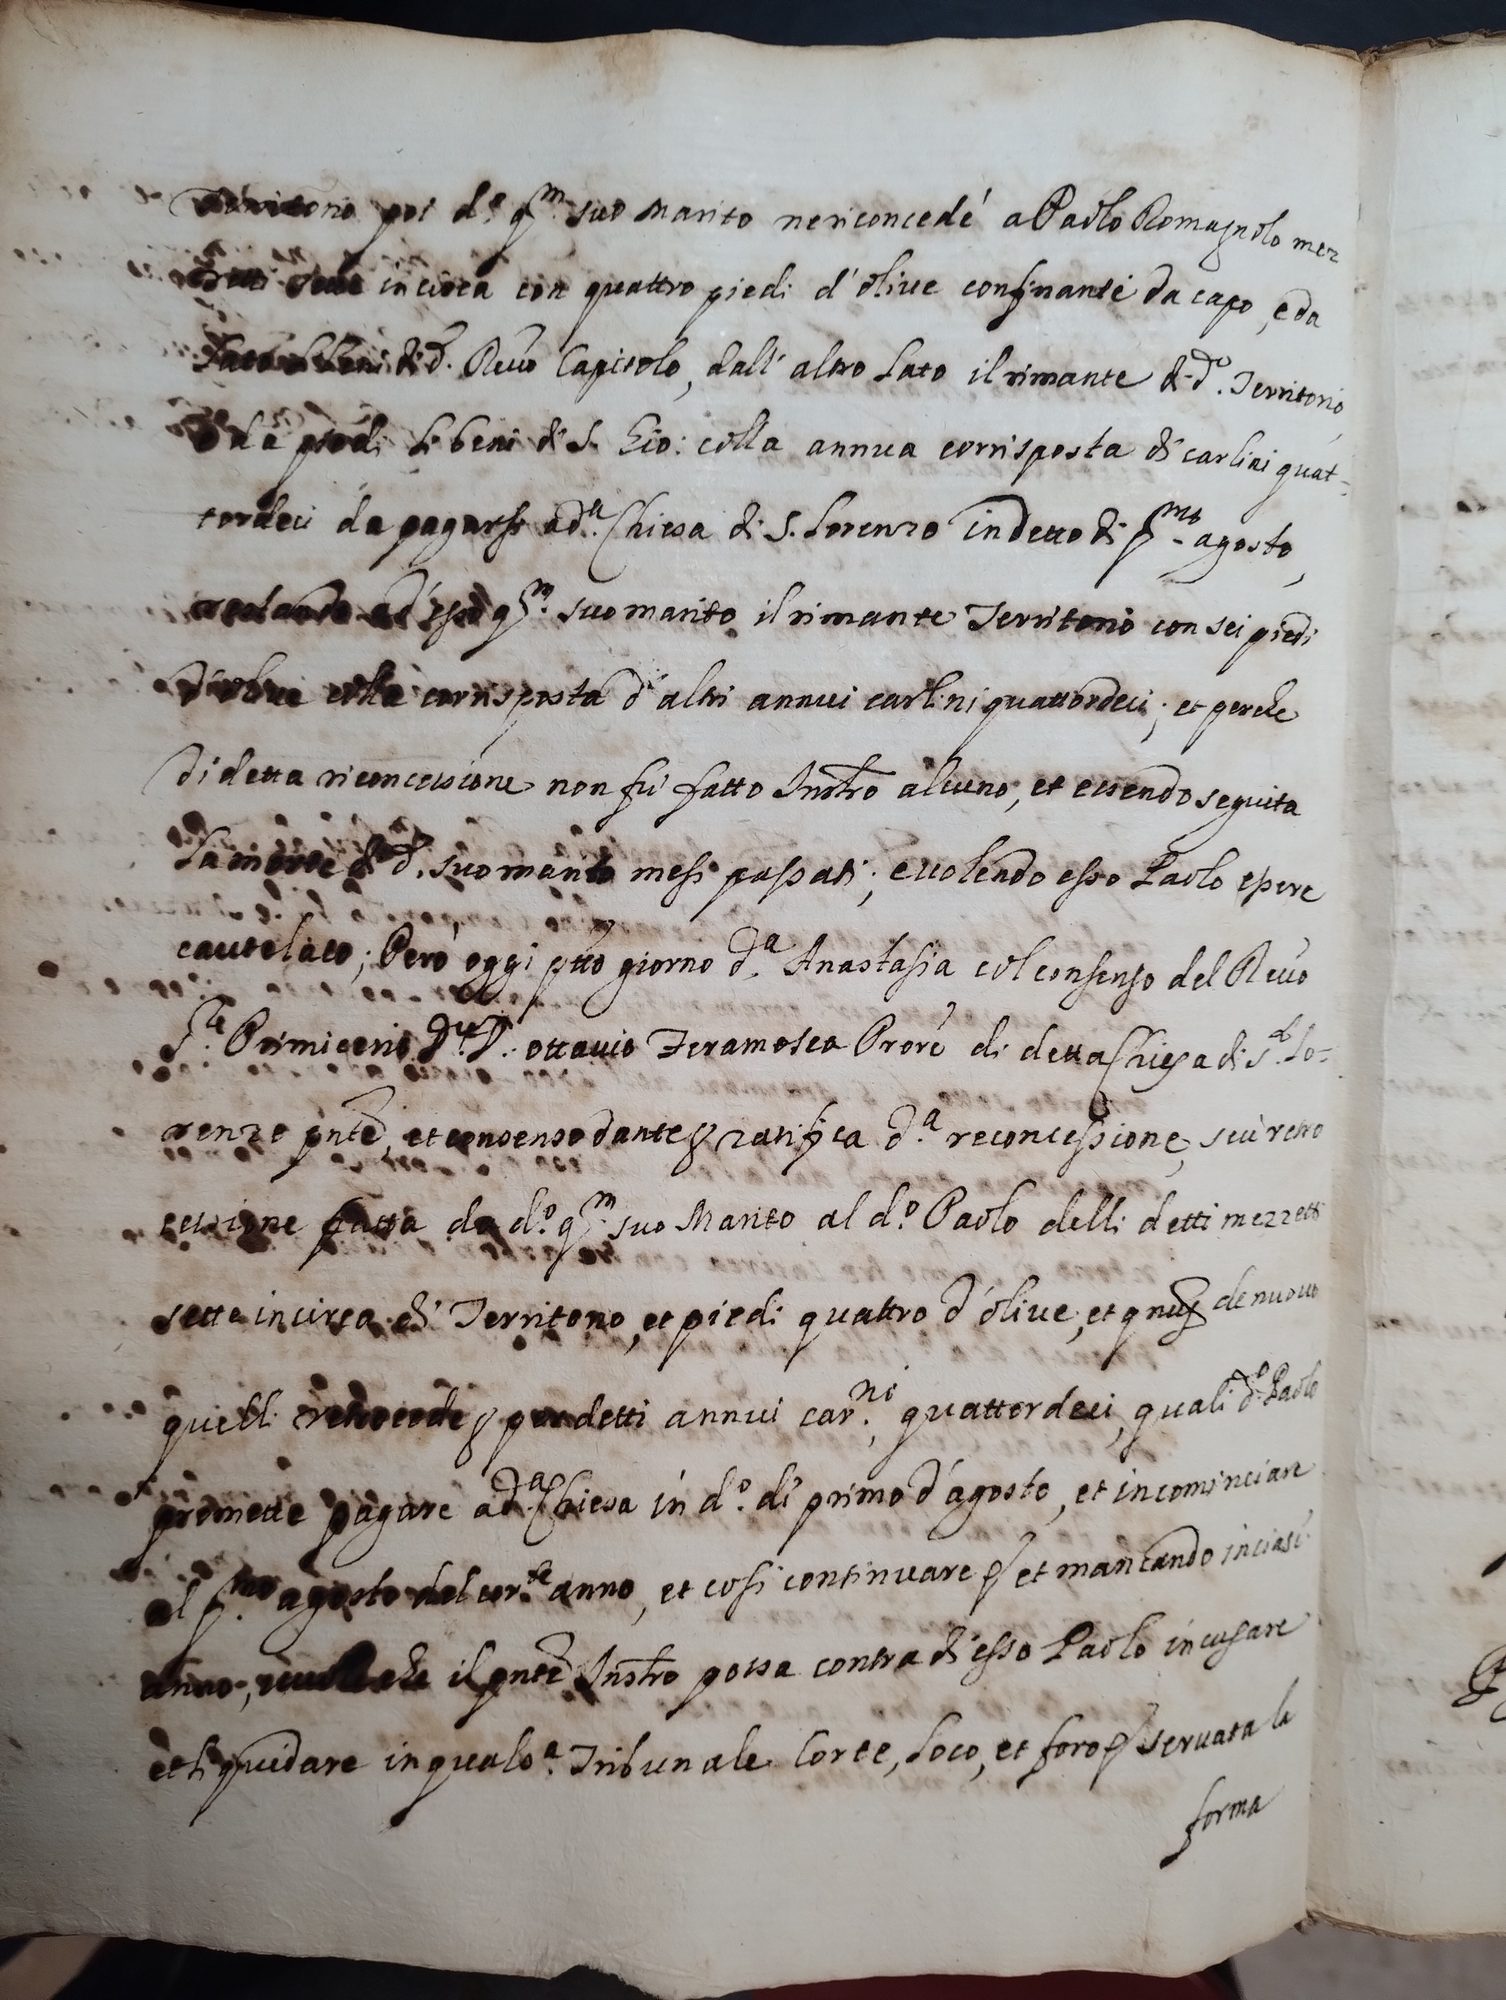 Territorio poi d.º q.m suo Marito ne riconcedé a Paolo Romagnolo mez
zetti sette incirca con quattro piedi d'olive confinante da capo, e da
lato li beni di d.º Reuo Capitolo, dall'altro lato il rimante di d.º Territorio,
e da piedi li beni di S. Gio: colla annua corrisposta di carlini quat-
tordeci da pagarse a d.a Chiesa di S. Lorenzo in detto dì p.mo agosto,
restando ad esso q.m suo marito il rimante Territorio con sei piedi
d'olive colla corrisposta d'altri annui carlini quattordeci; et perche
di detta riconcessione non fù fatto Instro alcuno, et essendo seguita
la morte di d.º suo marito mesi passati; e volendo esso Paolo essere
cautelato; Però oggi ptto giorno d.a Anastasia col consenso del Reuo
Primicerio D. Ottavio Feramosca Prore di detta Chiesa di S.to Lo-
renzo pnte, et consensodante ratifica d.a reconcessione, seù retro
cessione fatta da d.º q.m suo Marito al d.º Paolo delli detti mezzetti
sette incirca di Territorio, et piedi quattro d'olive, et de nuovo
quelli retrocede per detti annui car.ni quattordeci, quali d.º Paolo
promette pagare a d.a Chiesa in d.º dì primo d'agosto, et incominciare
al p.mo agosto del cor.te anno, et così continuare et mancando in ciasc.
anno, vuole che il pnte Instro possa contra di esso Paolo incusare
et liquidare in qualo.a Tribunale Corte, loco, et foro servata la
forma